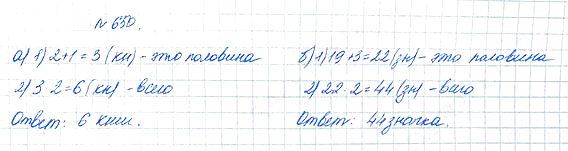 № 650.
а) 1) 2+1=3 (кн) - это половина
2) 3·2=6 (кн) - всего
Ответ: 6 книг.
б) 1) 19+3=22 (зн) - это половина
2) 22·2=44 (зн) - всего
Ответ: 44 значка.